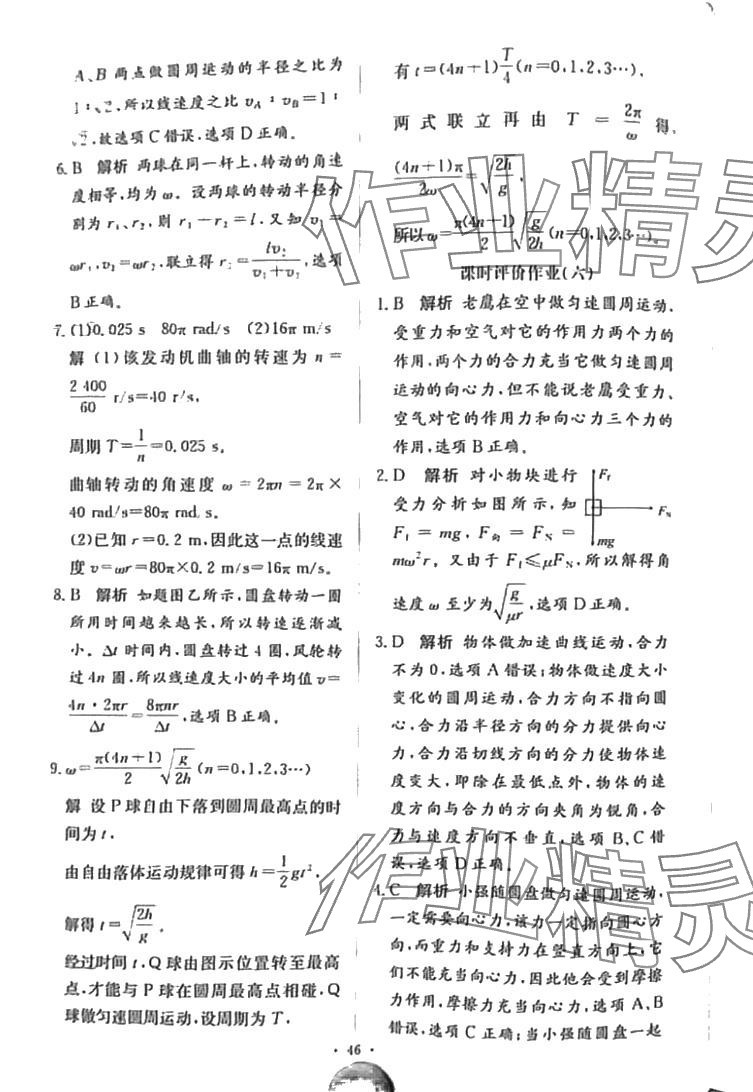 A、B 两点做圆周运动的半径之比为
1∶√2,所以线速度之比 v_A∶v_B=1∶
√2,故选项 C 错误,选项 D 正确。
6. B 解析 两球在同一杆上,转动的角速
度相等,均为 ω。设两球的转动半径分
别为 r₁、r₂,则 r₁+r₂=l。又知 v₁=
ωr₁,v₂=ωr₂,联立得 r₂=lv₂/(v₁+v₂),选项
B 正确。
7. (1)0.025 s 80π rad/s (2)16π m/s
解 (1)该发动机曲轴的转速为 n=
2 400/60 r/s=40 r/s,
周期 T=1/n=0.025 s,
曲轴转动的角速度 ω=2πn=2π×
40 rad/s=80π rad/s。
(2)已知 r=0.2 m,因此这一点的线速
度 v=ωr=80π×0.2 m/s=16π m/s。
8. B 解析 如题图乙所示,圆盘转动一圈
所用时间越来越长,所以转速逐渐减
小。Δt 时间内,圆盘转过 4 圈,风轮转
过 4n 圈,所以线速度大小的平均值 v=
4n·2πr/Δt=8πnr/Δt,选项 B 正确。
9. ω=π(4n+1)/2 √(g/2h)(n=0,1,2,3…)
解 设 P 球自由下落到圆周最高点的时
间为 t,
由自由落体运动规律可得 h=1/2 gt²,
解得 t=√(2h/g)。
经过时间 t,Q 球由图示位置转至最高
点,才能与 P 球在圆周最高点相碰,Q
球做匀速圆周运动,设周期为 T,
有 t=(4n+1)T/4(n=0,1,2,3…),
两式联立再由 T=2π/ω 得,
(4n+1)π/2ω=√(2h/g)
所以 ω=π(4n+1)/2 √(g/2h)(n=0,1,2,3…)。
课时评价作业(六)
1. B 解析 老鹰在空中做匀速圆周运动,
受重力和空气对它的作用力两个力的
作用,两个力的合力充当它做匀速圆周
运动的向心力,但不能说老鹰受重力、
空气对它的作用力和向心力三个力的
作用,选项 B 正确。
2. D 解析 对小物块进行
受力分析如图所示,知
F_f=mg,F_向=F_N=
mω²r。又由于 F_f≤μF_N,所以解得角
速度 ω 至少为√(g/μr),选项 D 正确。
F_f
F_N
mg
3. D 解析 物体做加速曲线运动,合力
不为 0,选项 A 错误;物体做速度大小
变化的圆周运动,合力方向不指向圆
心,合力沿半径方向的分力提供向心
力,合力沿切线方向的分力使物体速
度变大,即除在最低点外,物体的速
度方向与合力的方向夹角为锐角,合
力与速度方向不垂直,选项 B、C 错
误,选项 D 正确。
4. C 解析 小强随圆盘做匀速圆周运动,
一定需要向心力,该力一定指向圆心方
向,而重力和支持力在竖直方向上,它
们不能充当向心力,因此他会受到摩擦
力作用,摩擦力充当向心力,选项 A、B
错误,选项 C 正确;当小强随圆盘一起
· 46 ·
作业精灵
作业精灵